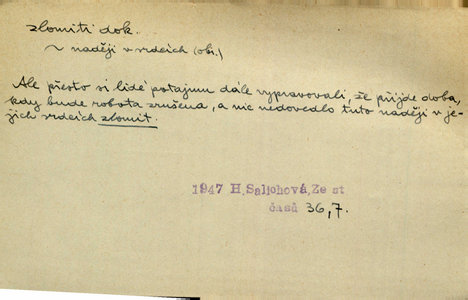 zlomiti dok.
~ naději v srdcích (obr.)
Ale přesto si lidé potajmu dále vypravovali, že přijde doba,
kdy bude robota zrušena, a nic nedovedlo tuto naději v je-
jich srdcích zlomit.
1947 H. Salichová, Ze st
časů 36,7.